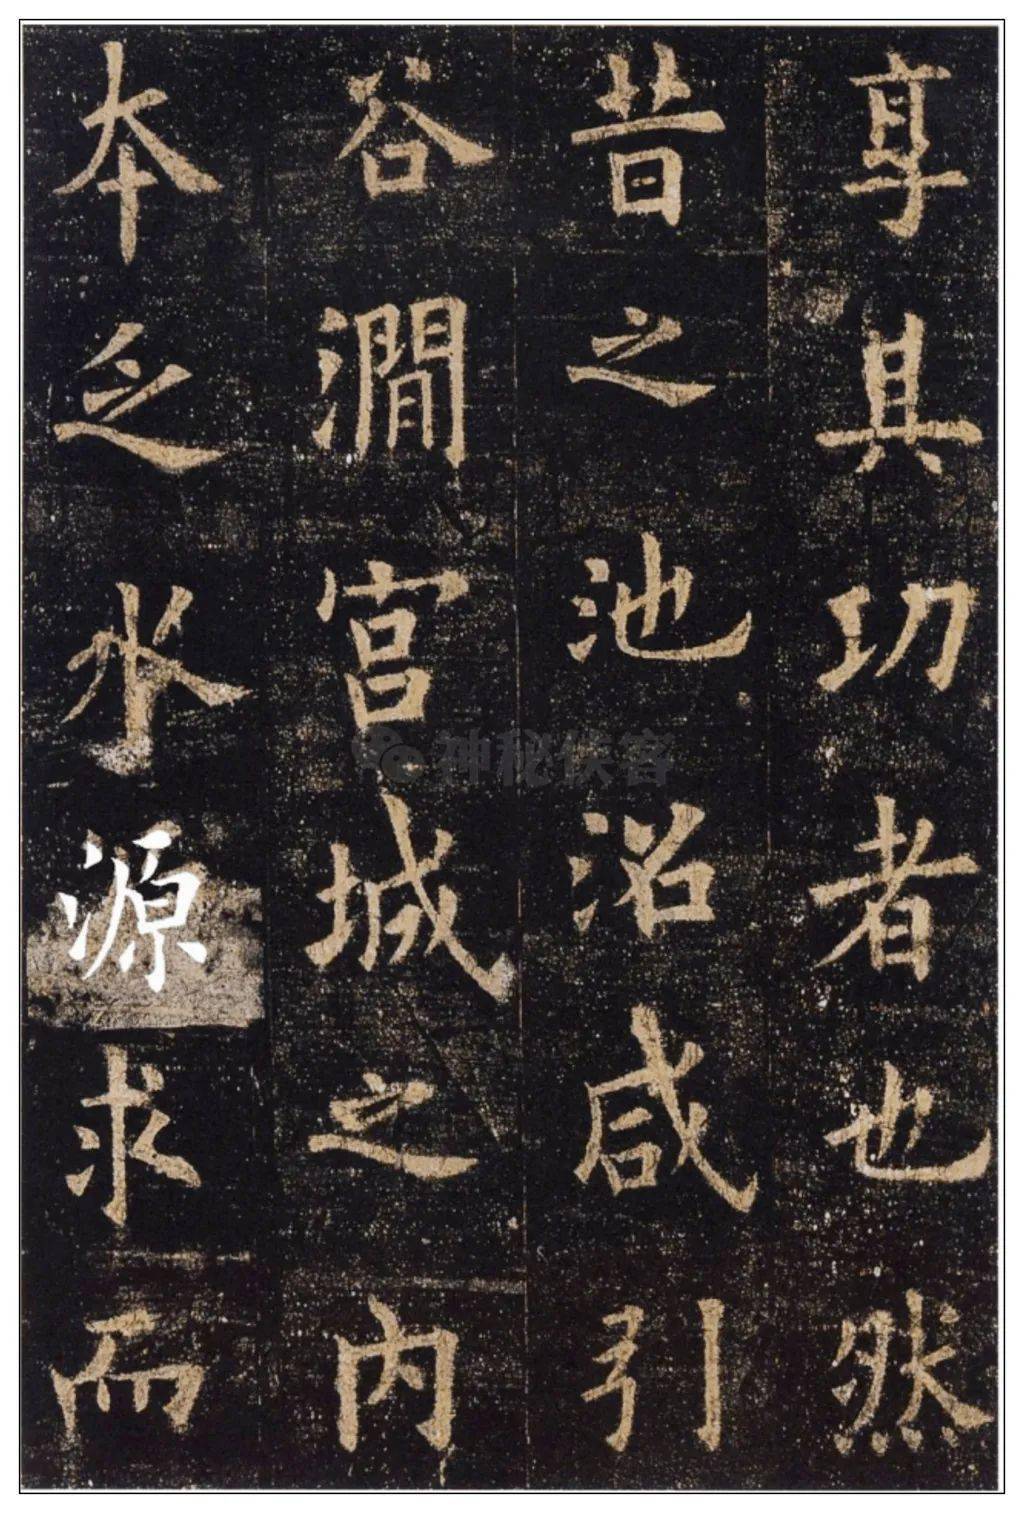 享其功者也然
昔之池沼咸引
谷澗宮城之內
本乏水源求而
神秘侠客